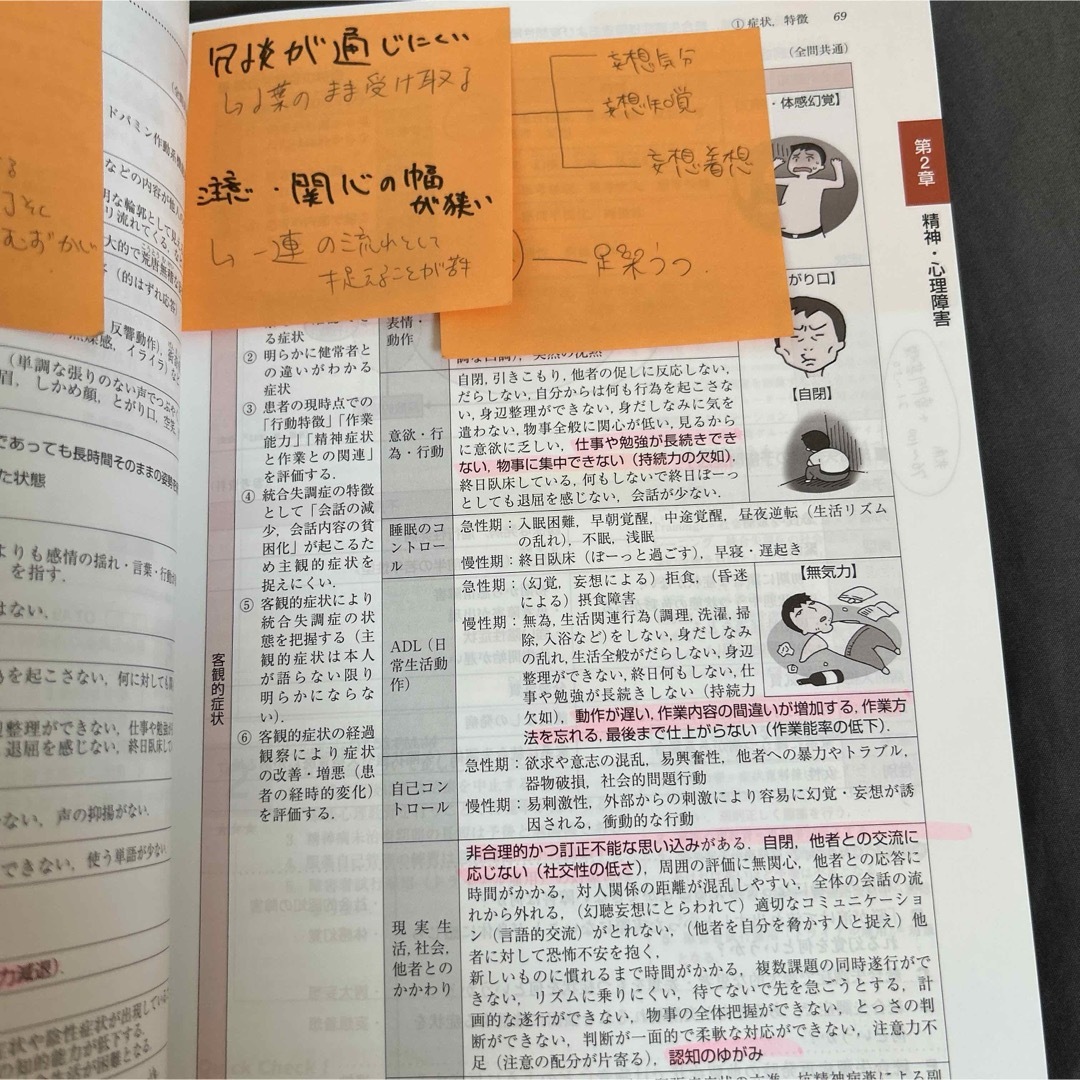 ① 症状, 特徴 69
(全問共通)
冗談が通じにくい
↳言葉のまま受け取る
注意・関心の幅
が狭い
↳一連の流れとして
捉えることが苦手
妄想気分
妄想知覚
妄想着想
・体感幻覚】
第2章
精神・心理障害
がり口】
【自閉】
【無気力】
ドパミン作動系
などの内容が
大的で荒唐無稽な
(的はずれ応答)
反響動作),
焦燥感, イライラ)
(単調な張りのない声でつぶや
眉, しかめ顔, とがり口, 空笑,
であっても長時間そのままの姿勢を
た状態
よりも感情の揺れ・言葉・行動
を指す.
はない,
を起こさない, 何に対しても
整理ができない, 仕事や勉強が
退屈を感じない, 終日臥床して
ない, 声の抑揚がない.
できない, 使う単語が少ない
力減退).
状や陰性症状が出現している
の知的能力が低下する.
生活が困難となる.
客観的症状
る症状
② 明らかに健常者と
の違いがわかる
症状
③ 患者の現時点での
「行動特徴」「作業
能力」「精神症状
と作業との関連」
を評価する.
④ 統合失調症の特徴
として「会話の減
少, 会話内容の貧
困化」が起こるた
め主観的症状を
捉えにくい.
⑤ 客観的症状により
統合失調症の状
態を把握する (主
観的症状は本人
が語らない限り
明らかにならな
い).
⑥ 客観的症状の経過
観察により症状
の改善・増悪 (患
者の経時的変化)
を評価する.
表情・
動作
意欲・行
為・行動
自閉, 引きこもり, 他者の促しに反応しない,
だらしない, 自分からは何も行為を起こさな
い, 身辺整理ができない, 身だしなみに気を
遣わない, 物事全般に関心が低い, 見るから
に意欲に乏しい, 仕事や勉強が長続きでき
ない, 物事に集中できない (持続力の欠如).
終日臥床している, 何もしないで終日ぼーっ
としても退屈を感じない, 会話が少ない.
睡眠のコ
ントロー
ル
急性期：入眠困難, 早朝覚醒, 中途覚醒, 昼夜逆転 (生活リズム
の乱れ), 不眠, 浅眠
慢性期：終日臥床 (ぼーっと過ごす), 早寝・遅起き
ADL (日
常生活動
作)
急性期：(幻覚, 妄想による) 拒食, (昏迷
による) 摂食障害
慢性期：無為, 生活関連行為 (調理, 洗濯, 掃
除, 入浴など) をしない, 身だしなみ
の乱れ, 生活全般がだらしない, 身辺
整理ができない, 終日何もしない, 仕
事や勉強が長続きしない (持続力
欠如), 動作が遅い, 作業内容の間違いが増加する, 作業方
法を忘れる, 最後まで仕上がらない (作業能率の低下).
自己コン
トロール
急性期：欲求や意志の混乱, 易興奮性, 他者への暴力やトラブル,
器物破損, 社会的問題行動
慢性期：易刺激性, 外部からの刺激により容易に幻覚・妄想が誘
因される, 衝動的な行動
現実生
活, 社会,
他者との
かかわり
非合理的かつ訂正不能な思い込みがある. 自閉, 他者との交流に
応じない (社交性の低さ), 周囲の評価に無関心, 他者との応答に
時間がかかる, 対人関係の距離が混乱しやすい, 全体の会話の流
れから外れる, (幻聴妄想にとらわれて) 適切なコミュニケーショ
ン (言語的交流) がとれない, (他者を自分を脅かす人と捉え) 他
者に対して恐怖不安を抱く,
新しいものに慣れるまで時間がかかる, 複数課題の同時遂行がで
きない, リズムに乗りにくい, 待てないで先を急ごうとする, 計
画的な遂行ができない, 物事の全体把握ができない, とっさの判
断ができない, 判断が一面的で柔軟な対応ができない, 注意力不
足 (注意の配分が片寄る), 認知のゆがみ